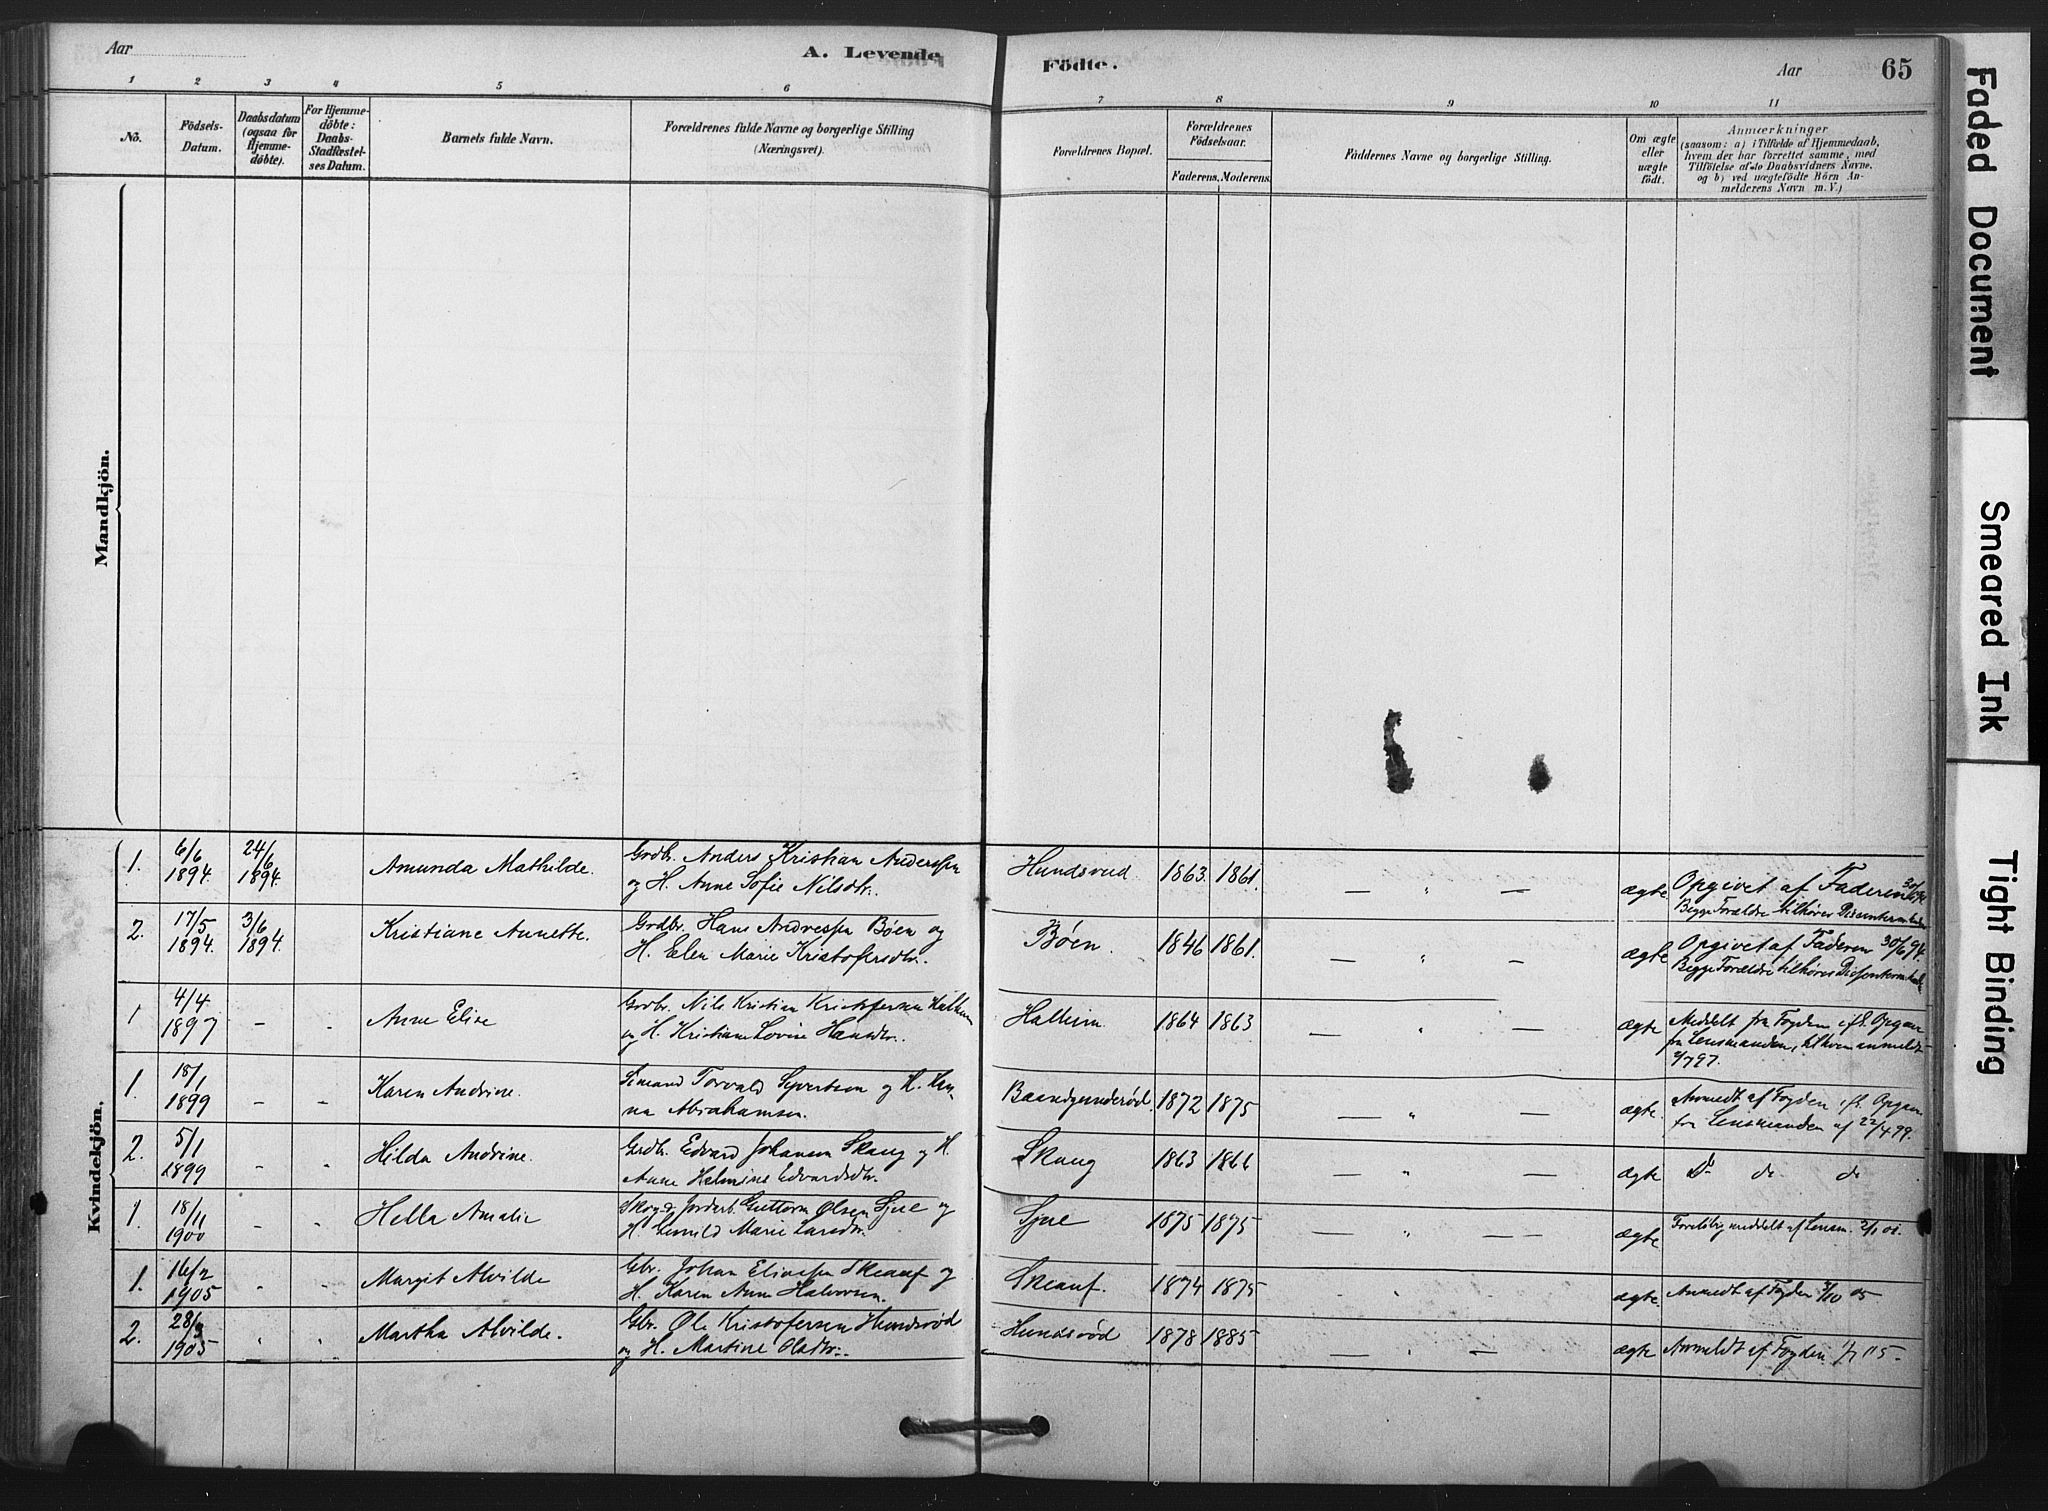 Aar
A. Levende
Födte.
Aar
65
1 2 3 4 5 6 7 8 9 10 11
No.
Födsels-
Datum.
Daabsdatum
(ogsaa for
Hjemme-
döbte).
For Hjemme-
döbte:
Daabs-
Stadfæstel-
ses Datum.
Barnets fulde Navn.
Forældrenes fulde Navne og borgerlige Stilling
(Næringsvei).
Forældrenes Bopæl.
Forældrenes
Födselsaar.
Faderens. Moderens.
Faddernes Navne og borgerlige Stilling.
Om ægte
eller
uægte
födt.
Anmærkninger
(saasom: a) i Tilfælde af Hjemmedaab,
hvem der har forrettet samme, med
Tilföielse af to Daabsvidners Navne,
og b) ved uægtefödte Börn An-
melderens Navn m. V.)
Mandkjön.
Kvindekjön.
1. 6/6 1894. 24/6 1894. Amunda Mathilde. Grdbr. Anders Kristian Anderssen
og H. Anne Sofie Nilsdtr. Hundsrud 1863. 1861. — " — ægte Opgivet af Faderen 30/6 94
Begge Forældre tilhører
2. 17/5 1894. 3/6 1894. Kristiane Annette. Grdbr. Hans Andressen Bøen og
H. Elen Marie Kristofersdtr. Bøen. 1846 1861. — " — ægte Opgivet af Faderen 30/6 94.
Begge Forældre tilhører
1 4/4 1897 - - Anne Elise Grdbr. Nils Kristian Kristofersen
og H. Kristiane Lovise Hansdtr. Halheim. 1864 1863 — " — ægte Meddelt fra Fogden efter Opgave
fra Lensmanden, til hvem anmeldt
1. 18/1 1899 - - Karen Andrine. Simand Torvald Syvertsen og H. Han-
na Abrahamsen. 1872 1875 — " — ægte. Anmeldt af Fogden eft. Opgave
fra Lensmanden af 22/4 99.
2. 5/1 1899 - - Hilda Andrine. Grdbr. Edvard Johansen Skaug og H.
Anne Helmine Edvardsdtr. Skaug 1863 1866 — " — ægte Do do do
1. 18/11 1900 - - Hella Amalie Skog & Jordarb. Guttorm Olsen Sjue og
H. Marie Larsdtr. 1875 1875 — " — — ægte meddelt af Lensm. 2/1 01.
1. 16/2 1905 - - Margit Alvilde Gbr. Johan Eliassen Skeauf og
H. Karen Anne Halvorsen. Skeauf. 1874 1875 ægte. Anmeldt af Fogden 05
2. 28/3 1905 Martha Alvilde. Gbr. Ole Kristofersen Hundsrød
og H. Martine Olsdtr. Hundsrød 1878 1885 — " — ægte Anmeldt af Fogden 05.
Faded Document
Smeared Ink
Tight Binding